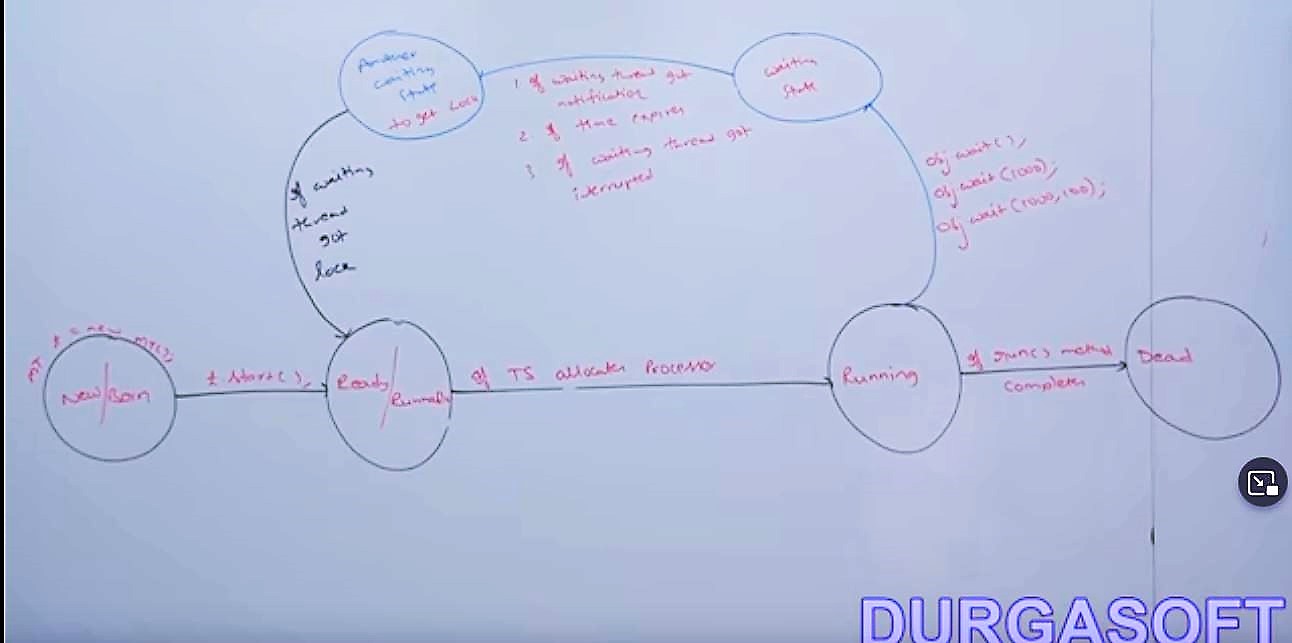 Another
waiting
state
to get Lock
1 If waiting thread got
notification
2 If time expires
3 If waiting thread got
iterrupted
waiting
state
obj.wait();
obj.wait(1000);
obj.wait(1000,100);
If waiting
thread
got
lock
MT t = new MT();
New/Born
t.start();
Ready/
Runnable
If TS allocates Processor
Running
If run() method
completes
Dead
DURGASOFT